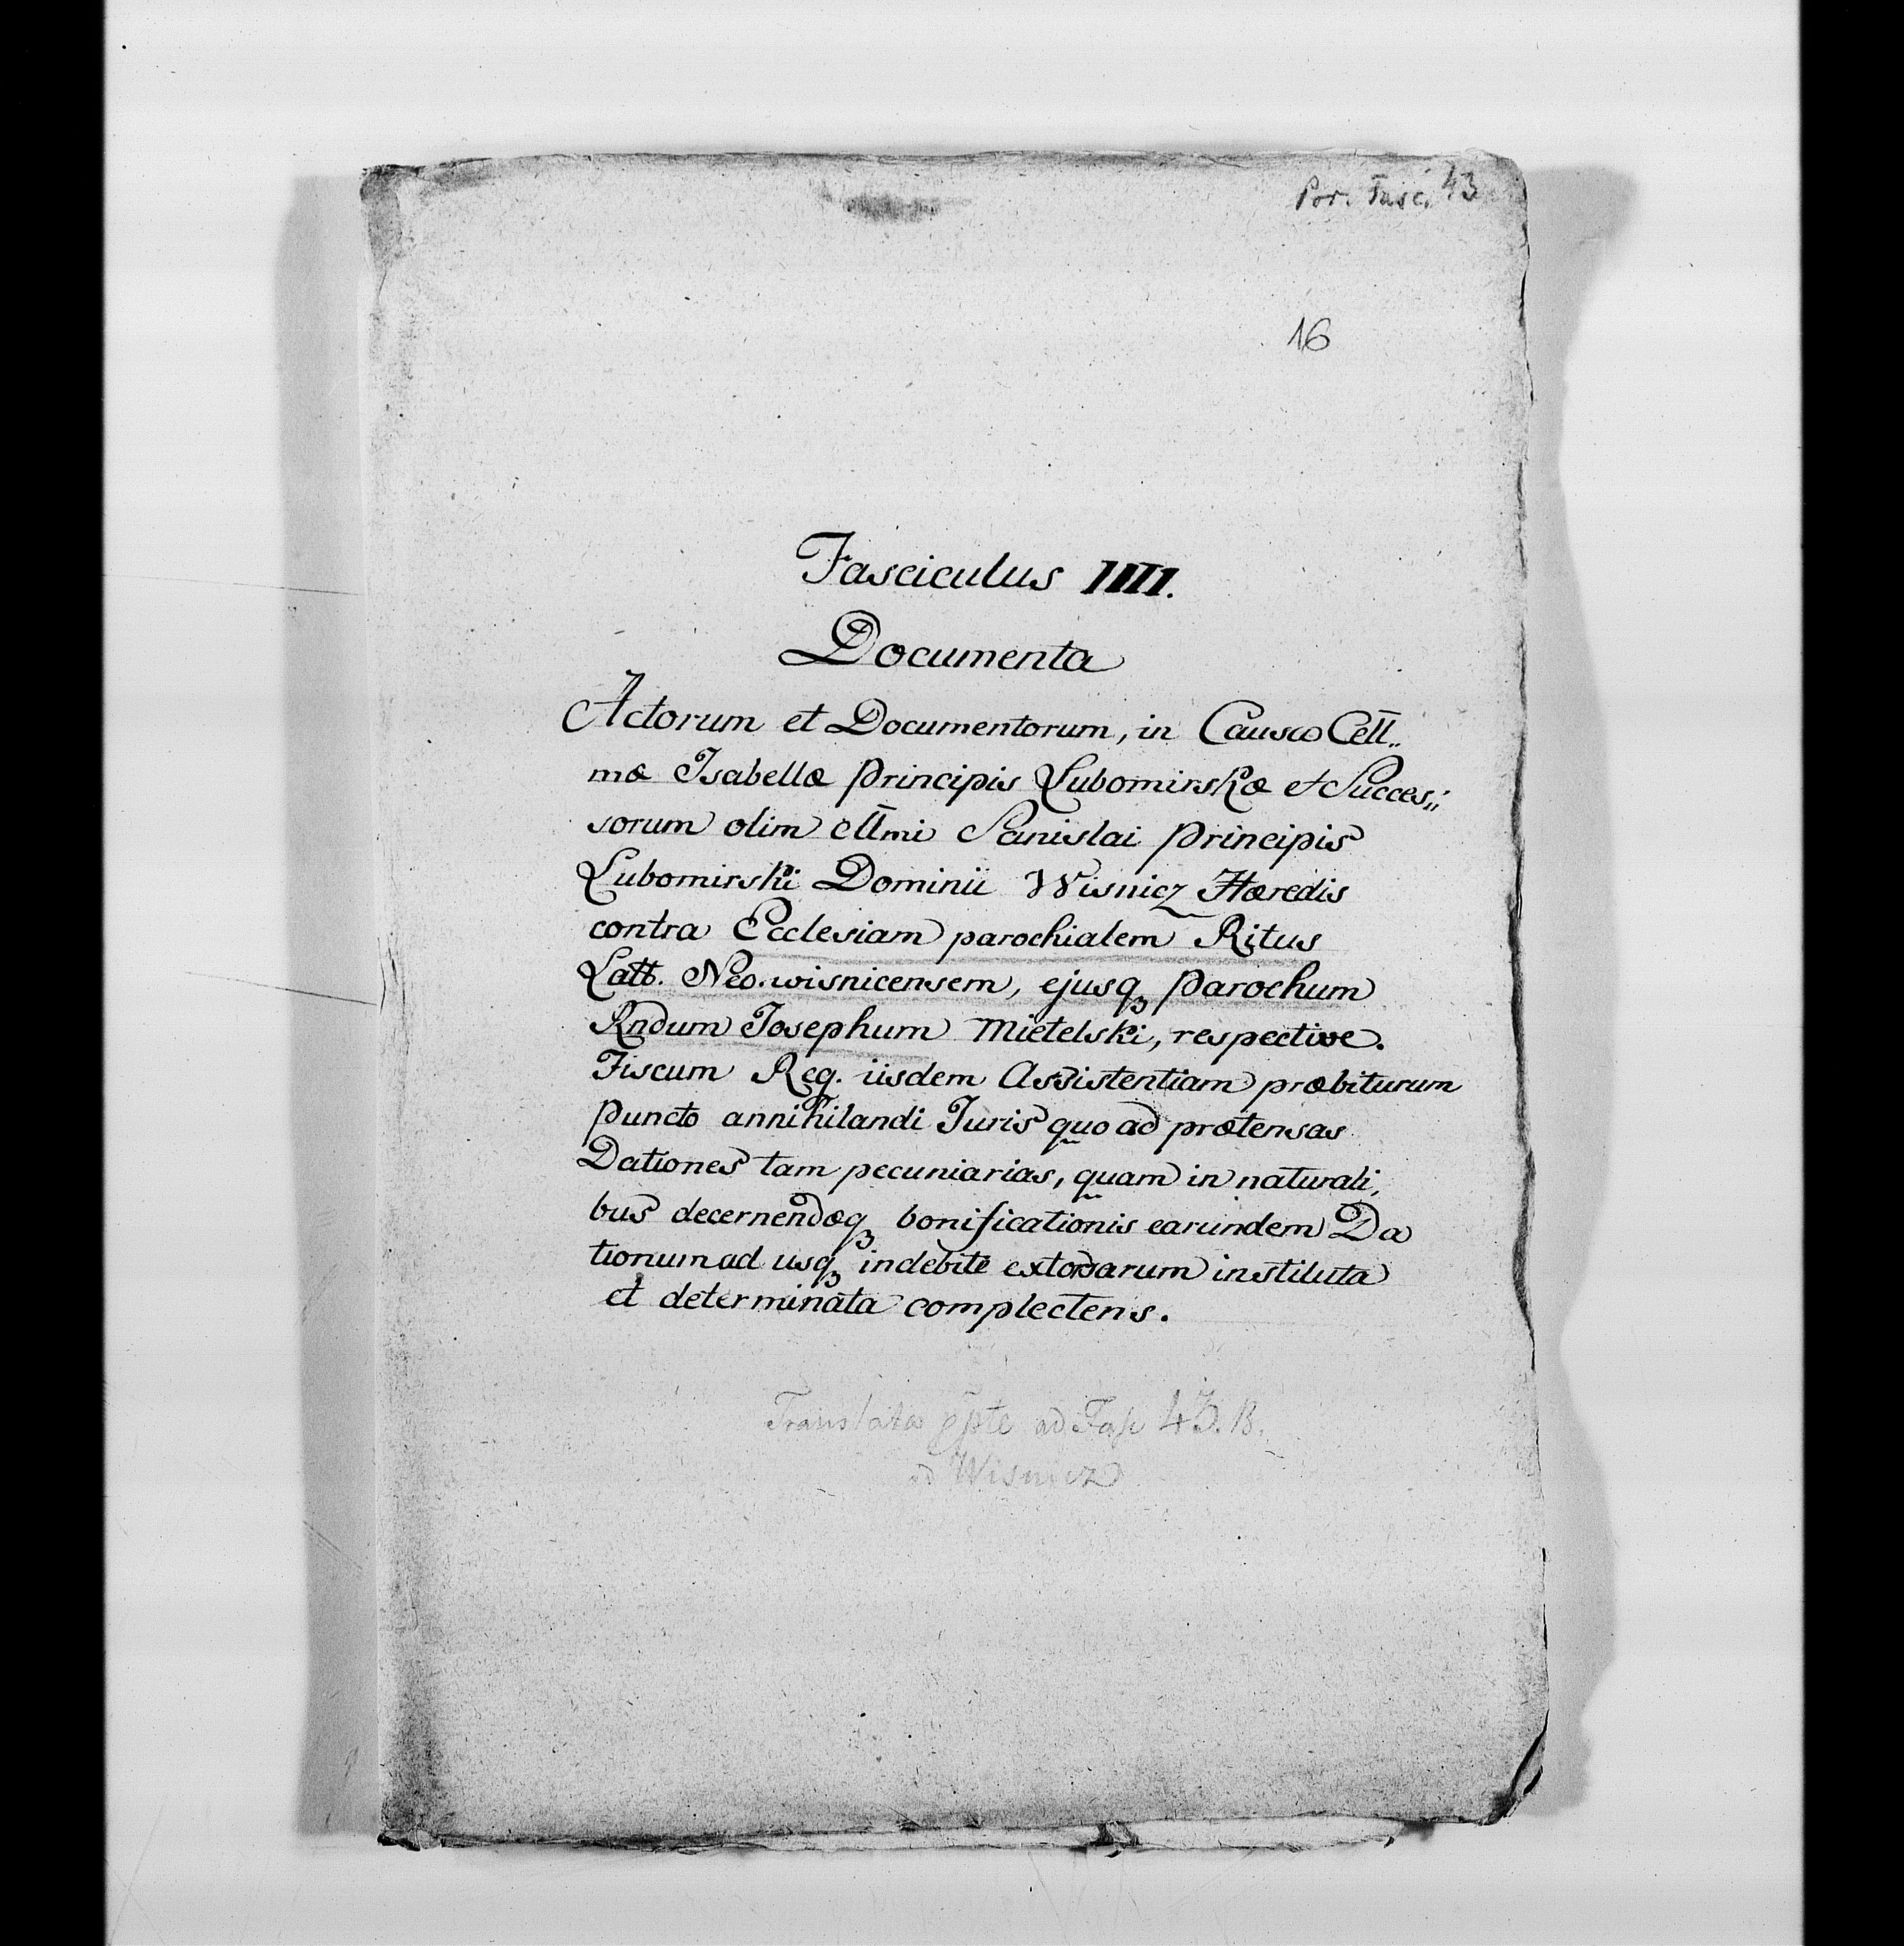 Por. Fasc. 43
16
Fasciculus IIII.
Documenta
Actorum et Documentorum, in Causa Cell„
mæ Isabellæ Principis Lubomirskæ et Succes„
sorum olim cllmi Sanislai Principis
Lubomirski Dominii Wisnicz Hæredis
contra Ecclesiam parochialem Ritus
Latt. Neo-wisnicensem, ejusq₃ Parochum
Rndum Josephum Mietelski, respective.
Fiscum Reg. iisdem Assistentiam præbiturum
puncto annihilandi Juris quo ad prætensas
Dationes tam pecuniarias, quam in naturali,
bus decernendæq₃ bonificationis earundem Da
tionum ad usq₃ indebite extorsarum instituta
et determinata complectens.
Translata ad Fasc 43. B.
ad Wisnicz